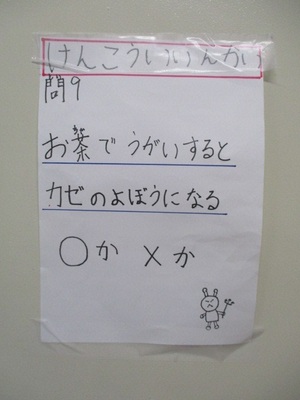 けんこういいんかい
問9
お茶でうがいすると
カゼのよぼうになる
○か ×か